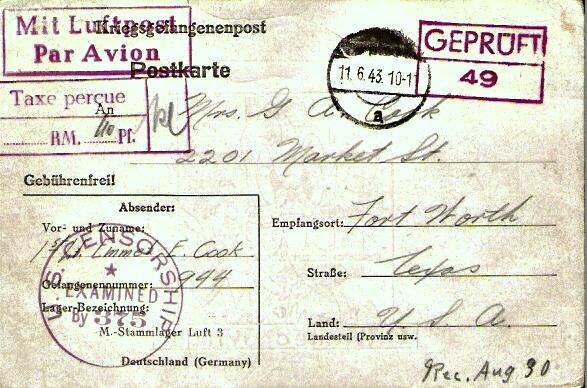 Mit Luftpost
Par Avion
Kriegsgefangenenpost
Postkarte
GEPRÜFT
49
11.6.43.10-11
a
Taxe perçue
RM. 40 Pf.
An
Mrs. G A Cook
2201 Market St.
Gebührenfrei!
Absender:
Vor- und Zuname:
1st Lt. Emmet F. Cook
Gefangenennummer: 944
Lager-Bezeichnung:
M.-Stammlager Luft 3
Deutschland (Germany)
U.S. CENSORSHIP
EXAMINED
By 375
Empfangsort: Fort Worth
Straße: Texas
Land: U. S. A.
Landesteil (Provinz usw.
Rec. Aug 30